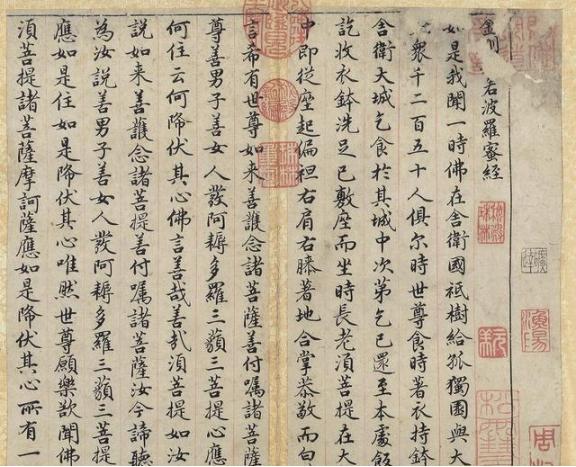 金 若波羅蜜經
如是我聞一時佛在舍衛國祇樹給孤獨園與大
衆千二百五十人俱尒時世尊食時著衣持鉢
舍衛大城乞食於其城中次第乞已還至本處飯
訖收衣鉢洗足已敷座而坐時長老湏菩提在大
中即從座起偏袒右肩右膝著地合掌恭敬而白
言希有世尊如來善護念諸菩薩善付嘱諸菩薩
尊善男子善女人發阿耨多羅三藐三菩提心應
何住云何降伏其心佛言善哉善哉湏菩提如汝
說如來善護念諸菩提善付嘱諸菩薩汝今諦聽
為汝說善男子善女人發阿耨多羅三藐三菩提
應如是住如是降伏其心唯然世尊願樂欲聞佛
湏菩提諸菩薩摩訶薩應如是降伏其心所有一